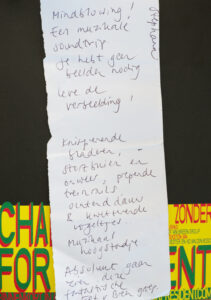 Mindblowing!
Een muzikale
soundtrip
Je hebt geen
beelden nodig
leve de
verbeelding!
Stephanie
Knisperende
bladeren,
stortbuien en
onweer, piepende
treinrails
ochtenddauw
& kwetterende
vogeltjes
Muzikaal
hoogstandje
Absoluut gaan
zien deze
fantastische
CHA
FOR
ZONDER
ENT